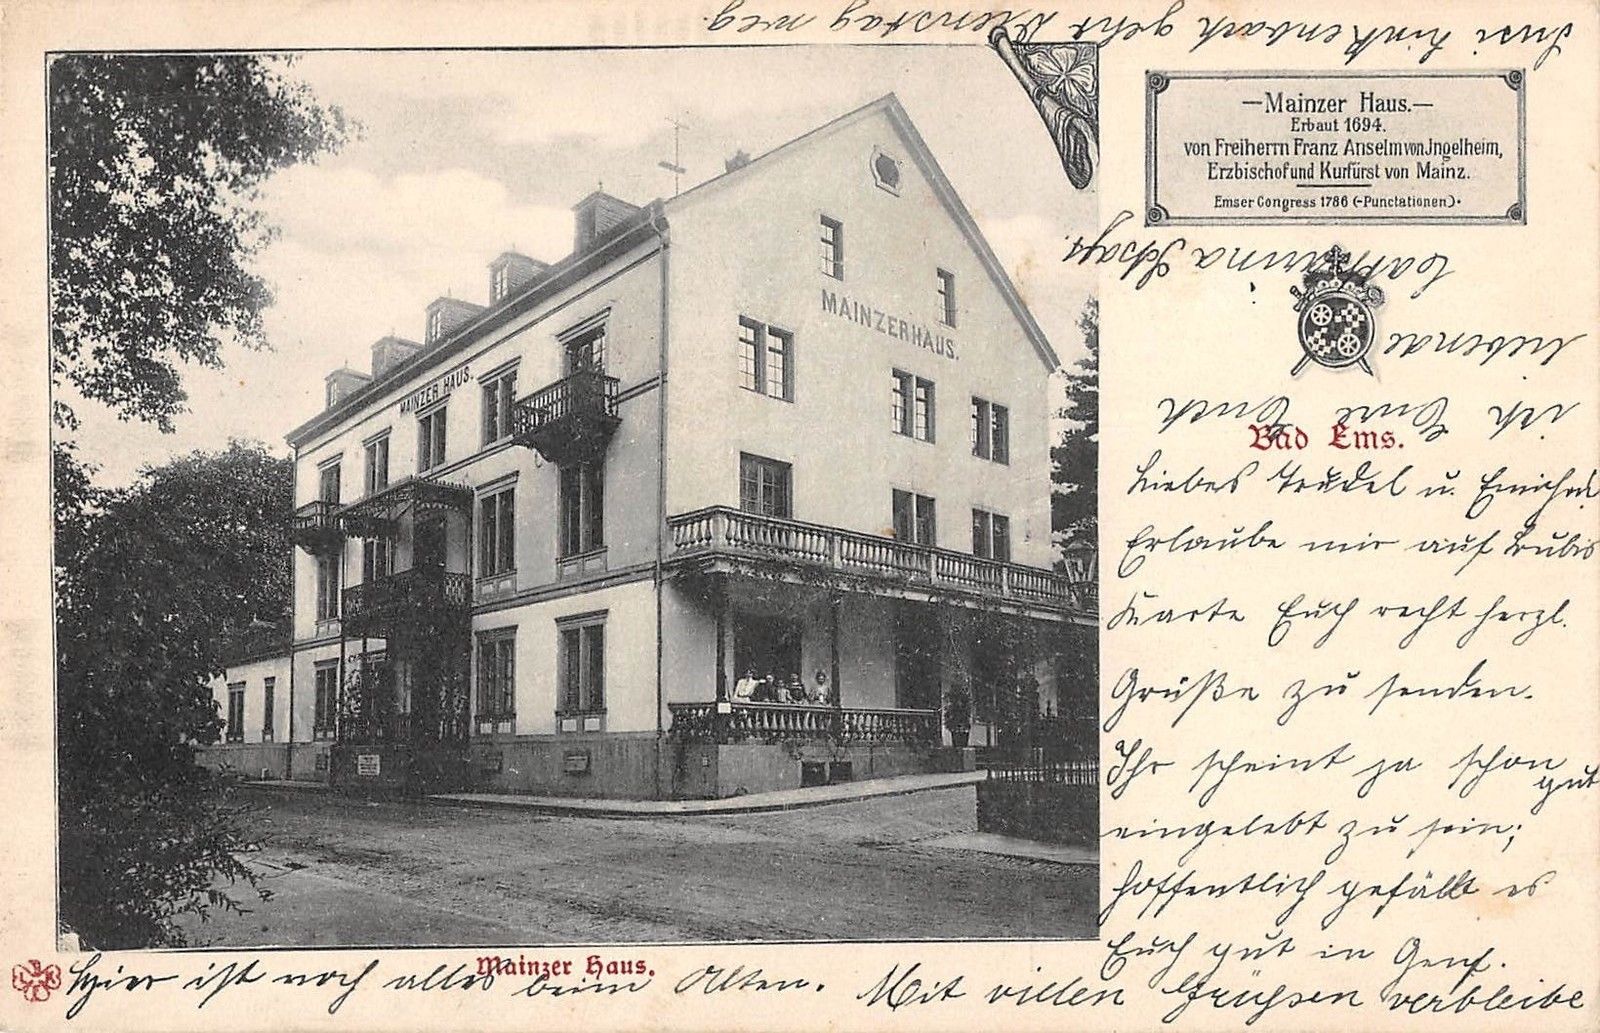 —Mainzer Haus.—
Erbaut 1694.
von Freiherrn Franz Anselm von Jngelheim,
Erzbischof und Kurfürst von Mainz.
Emser Congress 1786 (-Punctationen).
MAINZERHAUS.
MAINZER HAUS.
Bad Ems.
Liebes Trudel u.
Erlaube mir auf
Karte Euch recht herzl.
Grüße zu senden.
Ihr scheint ja schon
gut
eingelebt zu sein;
hoffentlich gefällt es
Euch gut in Genf.
Mainzer Haus.
Hier ist noch alles beim Alten. Mit vielen Grüßen verbleibe
ich Eure Euch
liebende
geht Dienstag weg.